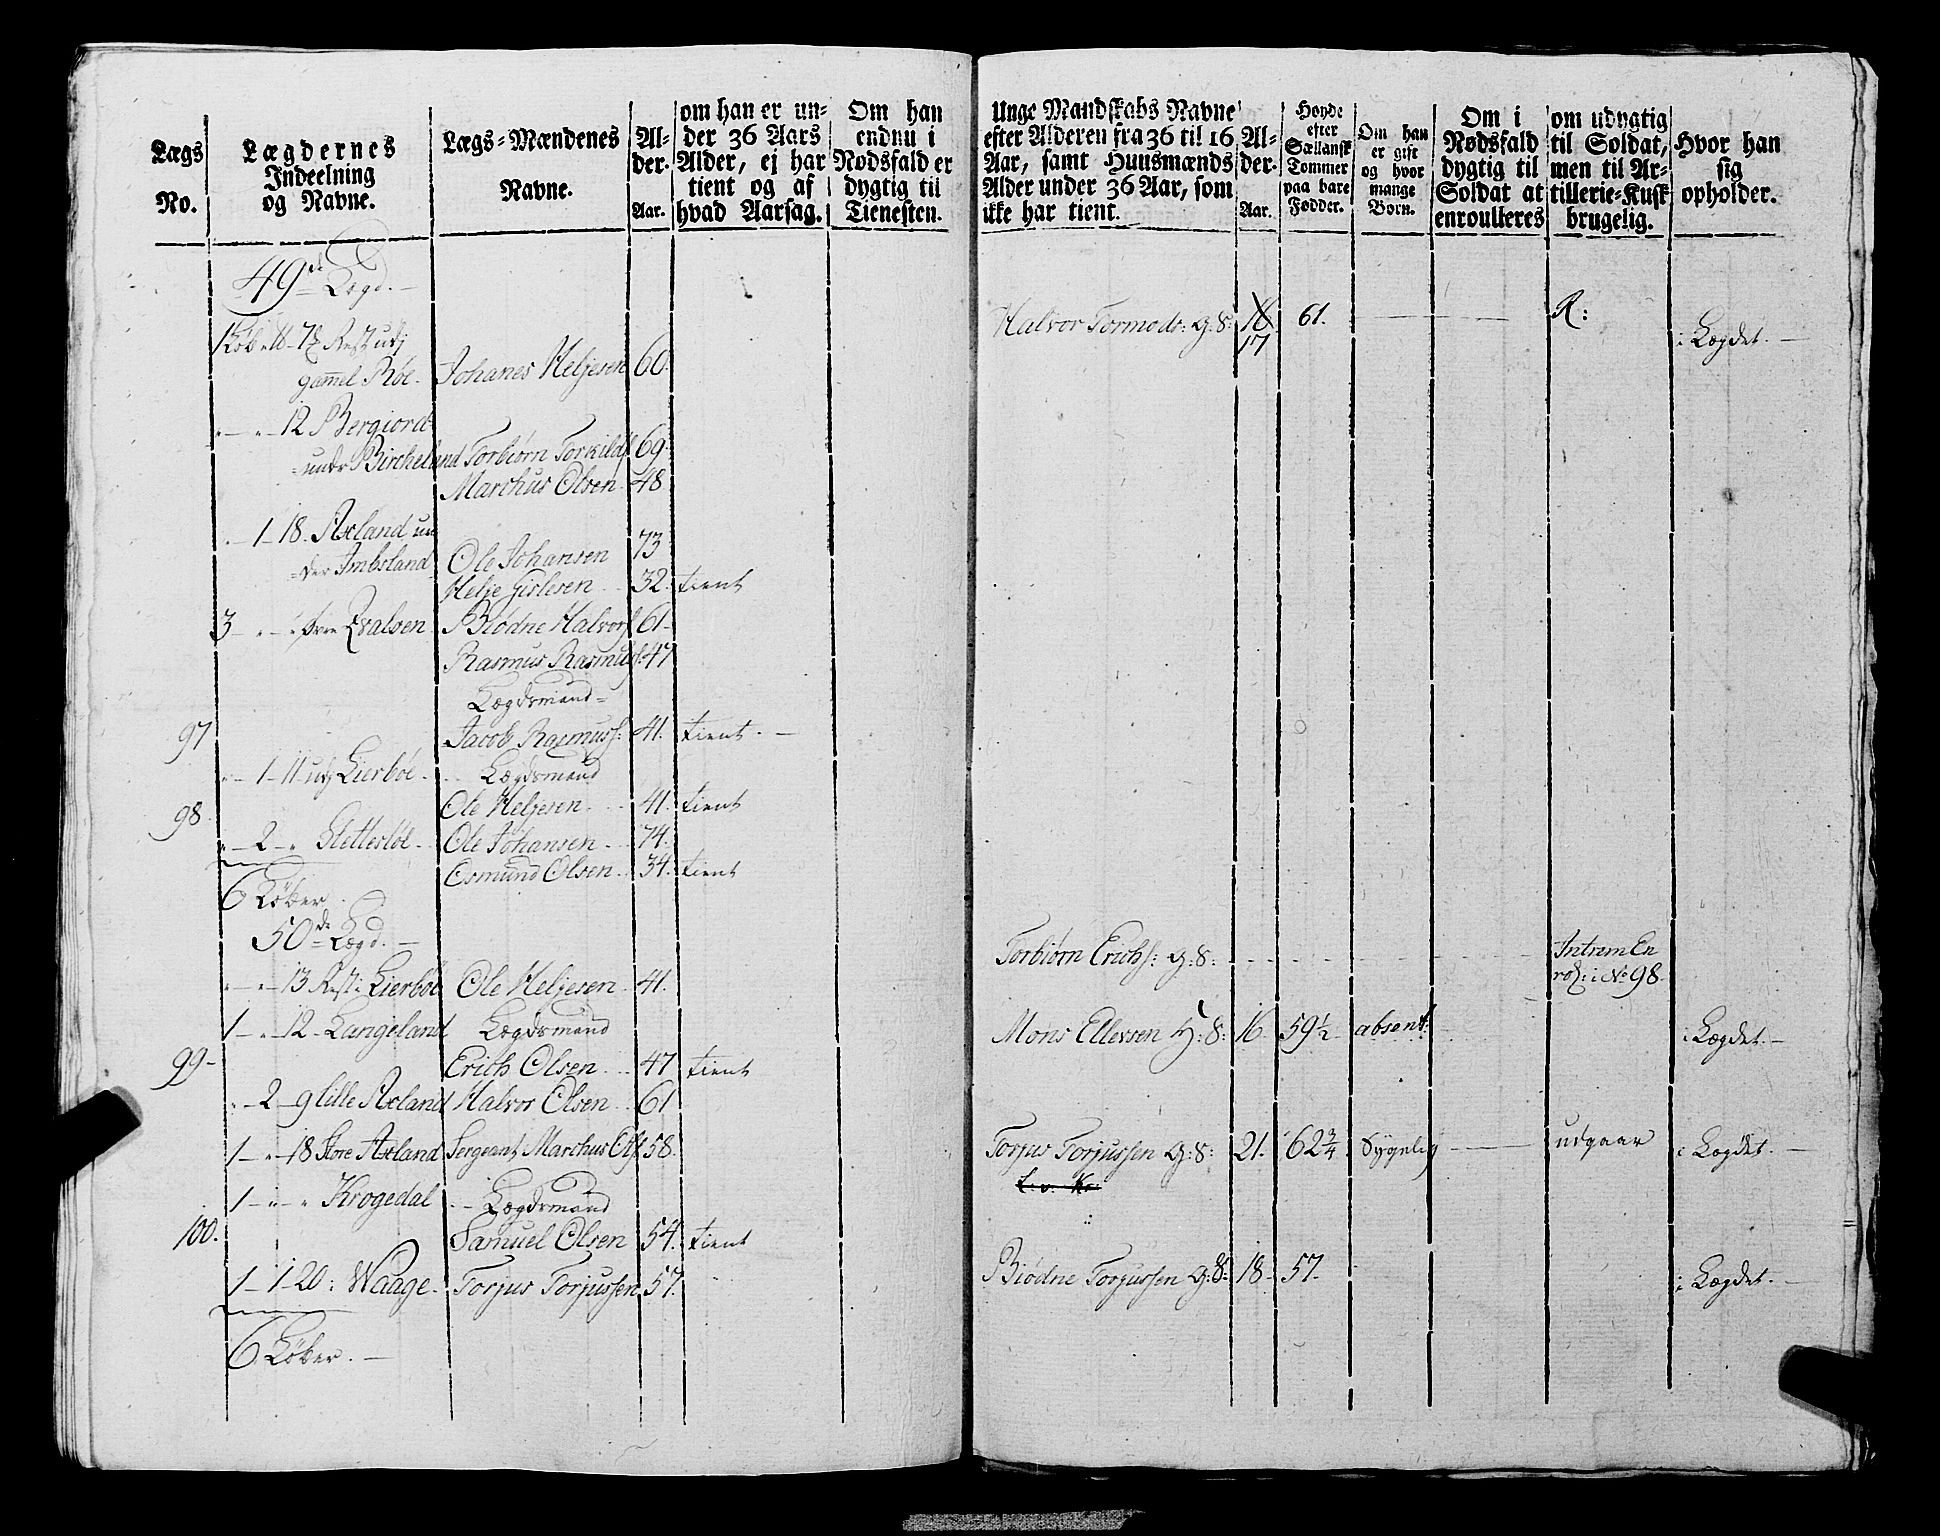 Lægs
No.
Lægdernes
Indeelning
og Navne.
Lægs-Mændenes
Navne.
Al-
der.
Aar.
om han er un-
der 36 Aars
Alder, ej har
tient og af
hvad Aarsag.
Om han
endnu i
Nødsfald er
dygtig til
Tienesten.
49de Lægd.
1 Løb " 11 - 7 Rest udj
gamel Røe. Johanes Heljesen 60.
" - " - 12 Bergiord
under Bircheland Torbiørn Torkilds 69.
Marchus Olsen 48
" - 1 - 18. Axland un
der Imbsland Ole Johansen 73
Helje Gislesen 32. tient
3 - " - " Qvalsen Biødne Halvors 61.
Rasmus Rasmus: 47
Lægdsmand
97 Jacob Rasmuss: 41. tient. -
" - 1 - 11 udj Lierbøe. Lægdsmand
98. Ole Heljesen. 41. tient
" - 2 - " Slettebøe. Ole Johansen. 74.
Osmund Olsen. 34. tient
6 Løber.
50de Lægd. -
" - " - 13 Rest: Lierbøe Ole Heljesen. 41.
1 - " - 12 - Langeland Lægdsmand
99- Erich Olsen. 47 tient
" - 2 - 9 Lille Axland Halvor Olsen. 61
1 - " - 18 Store Axland Sergeant Marchus Ols 58.
1 - " - " Krogedal Lægdsmand
100. Samuel Olsen 54. tient
1 - 1 - 20 : Waage. Torjus Torjussen 57.
6 Løber. -
Unge Mandskabs Navne
efter Alderen fra 36 til 16
Aar, samt Huusmænds
Alder under 36 Aar, som
ikke har tient.
Al-
der.
Aar.
Høyde
efter
Sællansk
Tommer
paa bare
Fødder.
Om han
er gift
og hvor
mange
Børn.
Om i
Nødsfald
dygtig til
Soldat at
enroulleres
om udygtig
til Soldat,
men til Ar-
tillerie-Kusk
brugelig.
Hvor han
sig
opholder.
Halvor Tormods: G:S: 16 61. R:
17 i Lægdet. -
Torbiørn Erichs: G:S: Intrem En
rol: i No 98.
Mons Ellevsen H:S: 16. 59 1/2 absent: i Lægdet. -
Torjus Torjussen G:S: 21. 62 3/4 Sygelig udgaar i Lægdet. -
Biødne Torjussen G:S: 18. 57. i Lægdet. -